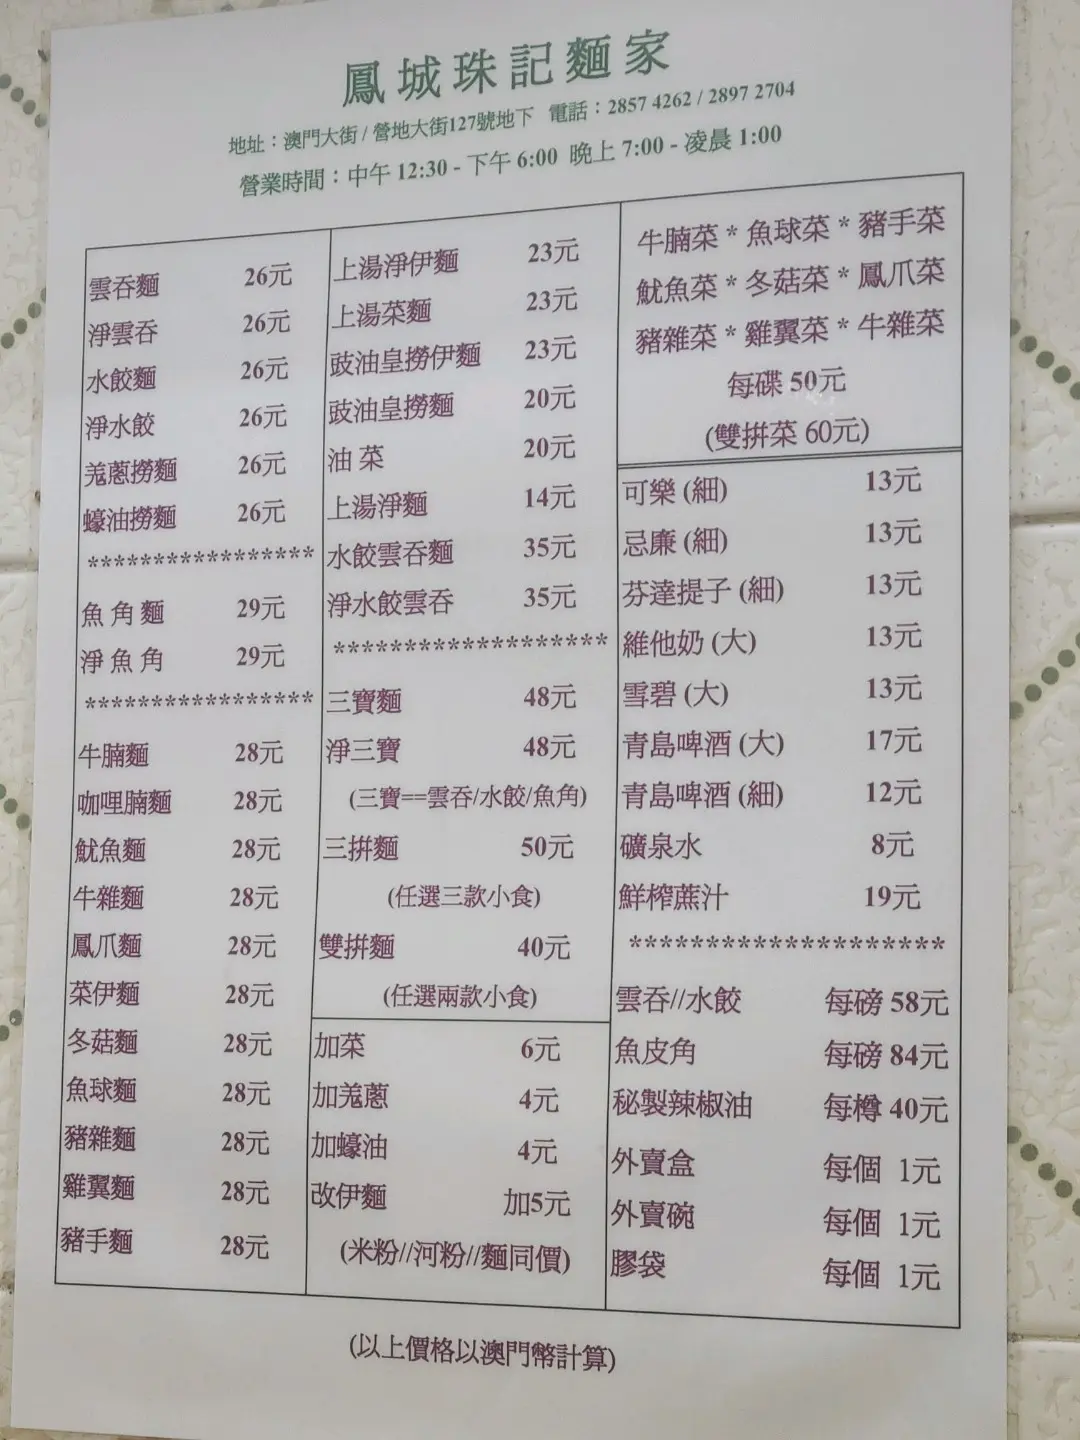 鳳城珠記麵家
地址：澳門大街 / 營地大街127號地下 電話：2857 4262 / 2897 2704
營業時間：中午 12:30 - 下午 6:00 晚上 7:00 - 凌晨 1:00
雲吞麵 26元
淨雲吞 26元
水餃麵 26元
淨水餃 26元
羗蔥撈麵 26元
蠔油撈麵 26元
*****************
魚角麵 29元
淨魚角 29元
*****************
牛腩麵 28元
咖哩腩麵 28元
魷魚麵 28元
牛雜麵 28元
鳳爪麵 28元
菜伊麵 28元
冬菇麵 28元
魚球麵 28元
豬雜麵 28元
雞翼麵 28元
豬手麵 28元
上湯淨伊麵 23元
上湯菜麵 23元
豉油皇撈伊麵 23元
豉油皇撈麵 20元
油菜 20元
上湯淨麵 14元
水餃雲吞麵 35元
淨水餃雲吞 35元
*******************
三寶麵 48元
淨三寶 48元
(三寶==雲吞/水餃/魚角)
三拚麵 50元
(任選三款小食)
雙拚麵 40元
(任選兩款小食)
加菜 6元
加羗蔥 4元
加蠔油 4元
改伊麵 加5元
(米粉//河粉//麵同價)
牛腩菜 * 魚球菜 * 豬手菜
魷魚菜 * 冬菇菜 * 鳳爪菜
豬雜菜 * 雞翼菜 * 牛雜菜
每碟 50元
(雙拚菜 60元)
可樂 (細) 13元
忌廉 (細) 13元
芬達提子 (細) 13元
維他奶 (大) 13元
雪碧 (大) 13元
青島啤酒 (大) 17元
青島啤酒 (細) 12元
礦泉水 8元
鮮榨蔗汁 19元
*********************
雲吞//水餃 每磅 58元
魚皮角 每磅 84元
秘製辣椒油 每樽 40元
外賣盒 每個 1元
外賣碗 每個 1元
膠袋 每個 1元
(以上價格以澳門幣計算)